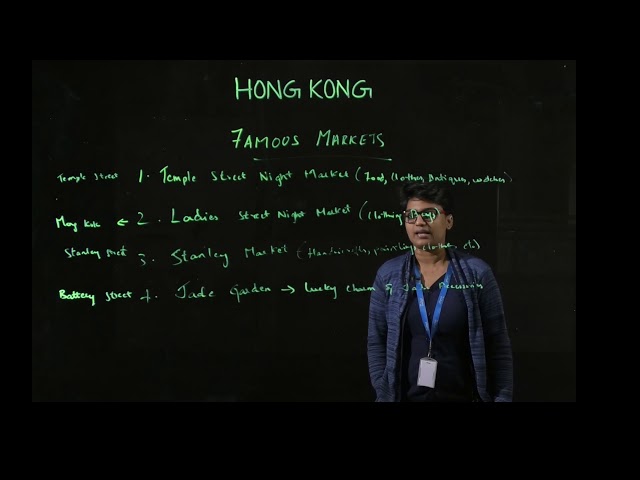 HONG KONG
FAMOUS MARKETS
Temple Street 1. Temple Street Night Market (Food, Clothes, Antiques, watches)
Mong Kok ← 2. Ladies Street Night Market (Clothing, Bags)
Stanley Street 3. Stanley Market (Handicrafts, paintings, clothes, etc)
Battery Street 4. Jade Garden → Lucky charm & Jade Accessories